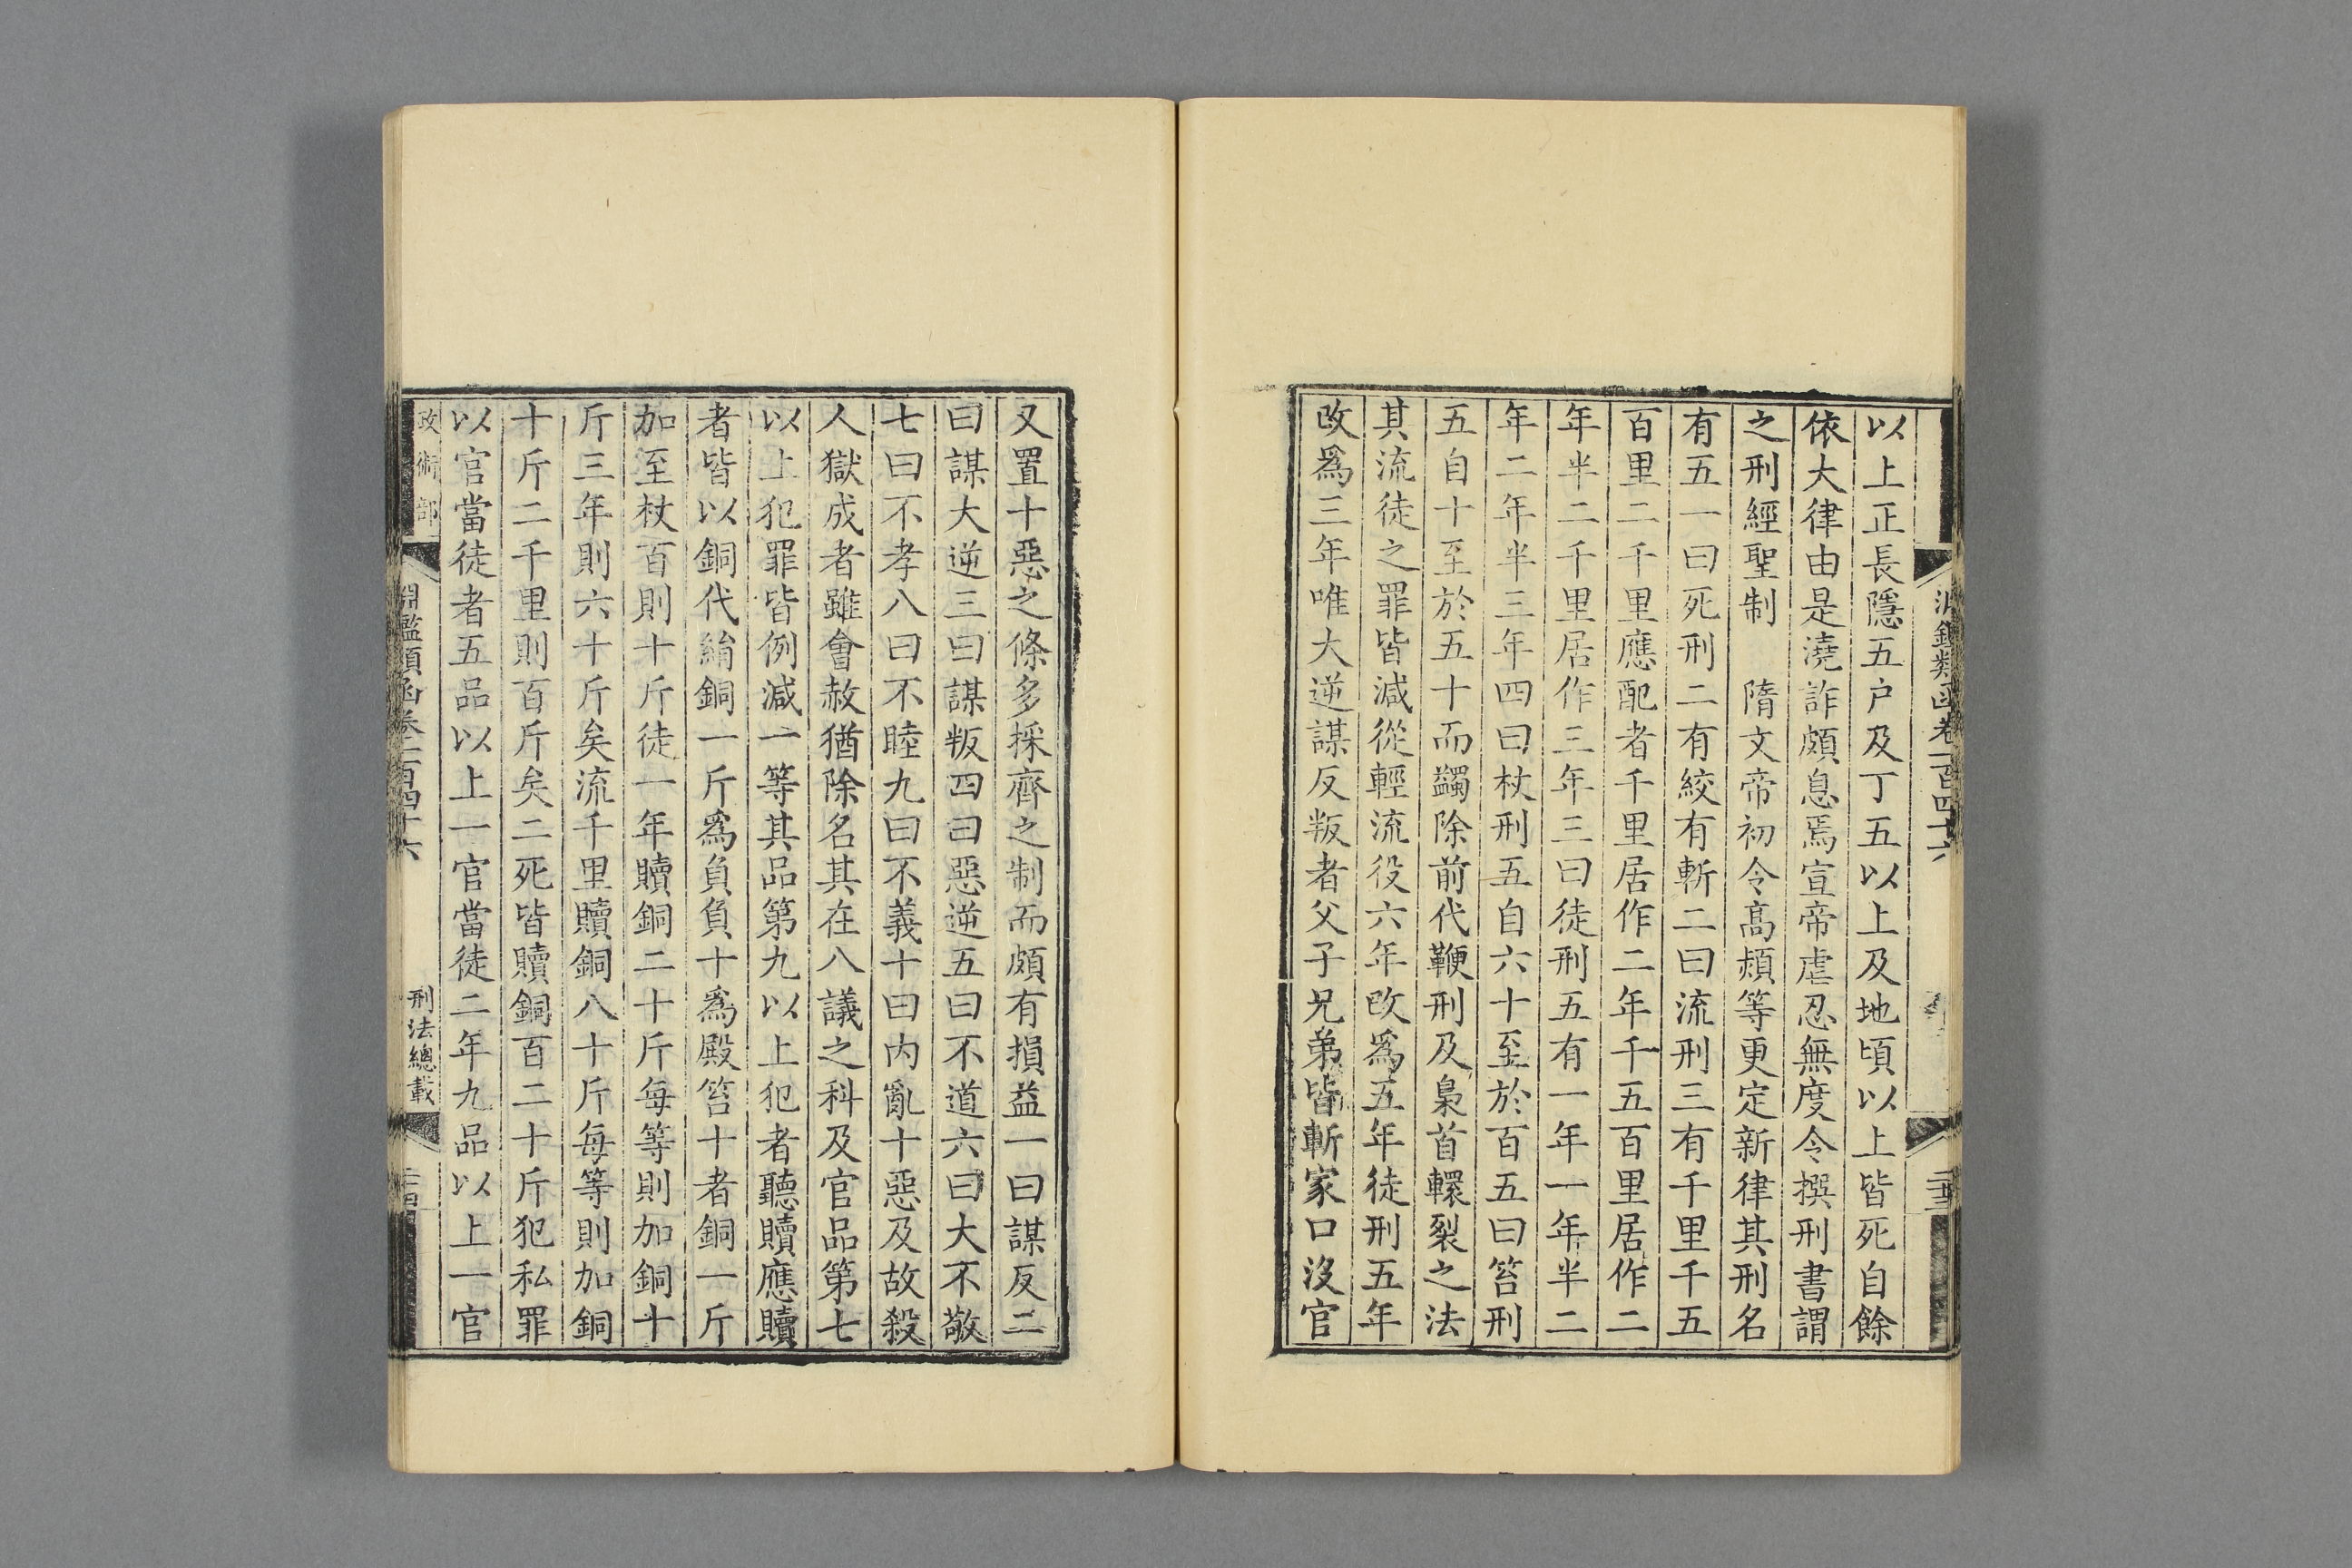 以上正長隱五户及丁五以上及地頃以上皆死自餘
依大律由是澆詐頗息焉宣帝虐忍無度令撰刑書謂
之刑經聖制　隋文帝初令高熲等更定新律其刑名
有五一曰死刑二有絞有斬二曰流刑三有千里千五
百里二千里應配者千里居作二年千五百里居作二
年半二千里居作三年三曰徒刑五有一年一年半二
年二年半三年四曰杖刑五自六十至於百五曰笞刑
五自十至於五十而蠲除前代鞭刑及梟首轘裂之法
其流徒之罪皆減從輕流役六年改爲五年徒刑五年
改爲三年唯大逆謀反叛者父子兄弟皆斬家口沒官
又置十惡之條多採齊之制而頗有損益一曰謀反二
曰謀大逆三曰謀叛四曰惡逆五曰不道六曰大不敬
七曰不孝八曰不睦九曰不義十曰内亂十惡及故殺
人獄成者雖會赦猶除名其在八議之科及官品第七
以上犯罪皆例減一等其品第九以上犯者聽贖應贖
者皆以銅代絹銅一斤爲負負十爲殿笞十者銅一斤
加至杖百則十斤徒一年贖銅二十斤每等則加銅十
斤三年則六十斤矣流千里贖銅八十斤每等則加銅
十斤二千里則百斤矣二死皆贖銅百二十斤犯私罪
以官當徒者五品以上一官當徒二年九品以上一官
政術部
淵鑑類函卷一百四十六
刑法總載
二十四